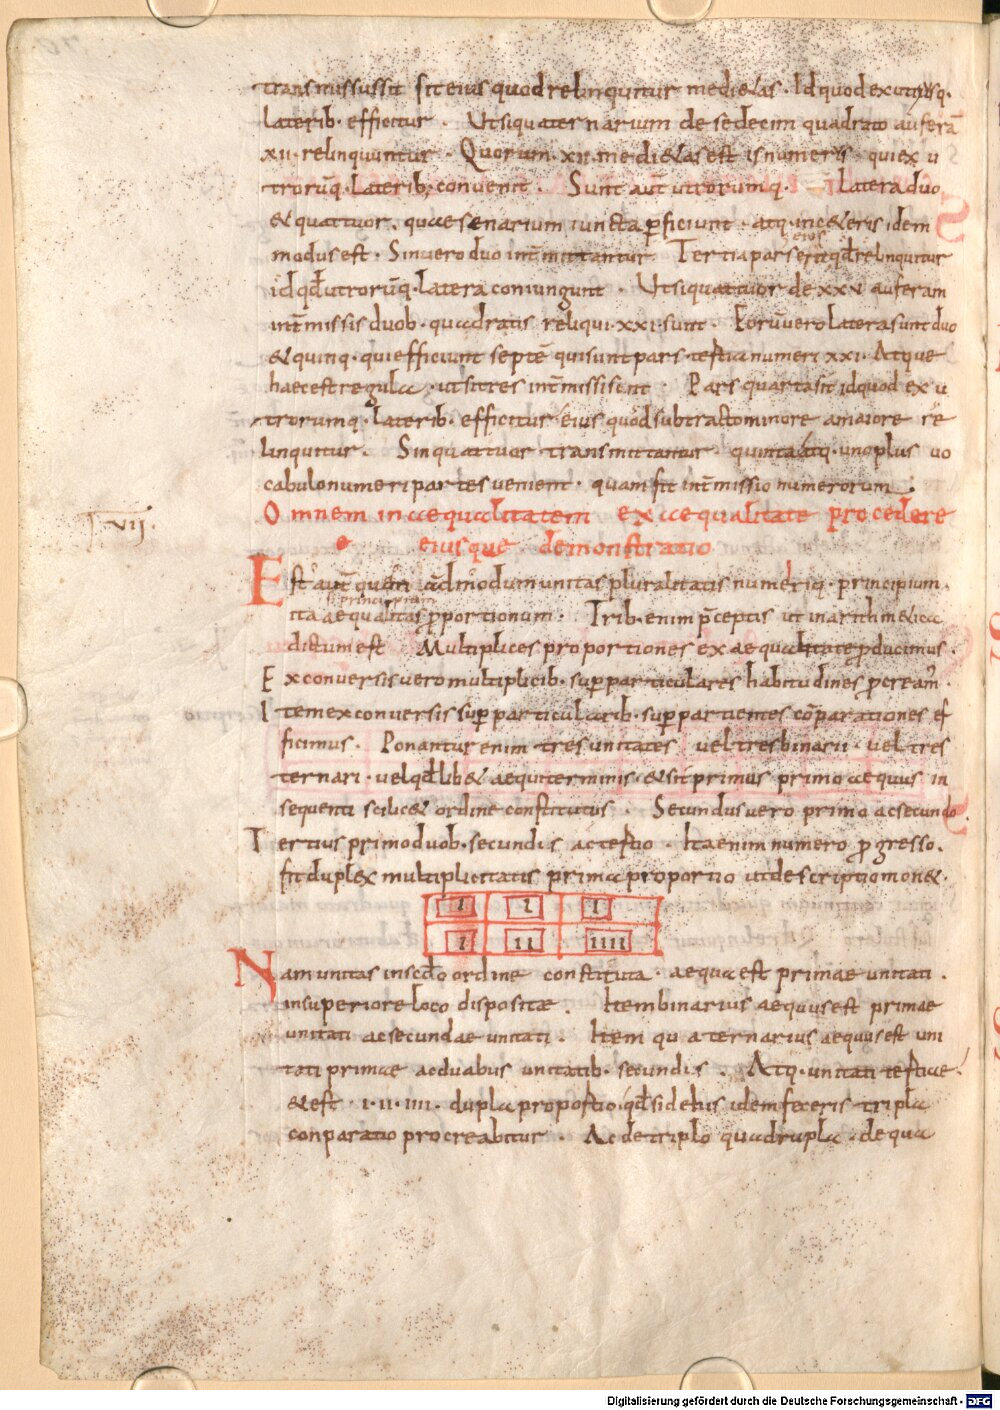 transmissus sit sit eius quod relinquitur medi&as. Id quod ex utrisq.
laterib. efficitur. Ut si quaternarium de sedecim quadrato auferā
xii. relinquuntur. Quorum. xii. medi&as est is numerus qui ex u
trorūq. laterib; convenit. Sunt aut̄ utrorumq. latera duo
& quattuor. quae senarium iuncta p̄ficiunt. atq. in c&eris idem
modus est. Sin vero duo int̄mittantur. Tertia pars erit qd̄ relinquitur
eius
id qd̄ utrorūq. latera coniungunt. Ut si quattuor de xxv auferam
int̄missis duob. quadratis reliqui. xxi. sunt. Eorū vero latera sunt duo
& quinq. qui efficiunt septē qui sunt pars. tertia numeri xxi. Atque
haec est regula. ut si tres int̄missi sint. Pars quarta sit id quod ex u
trorumq. laterib. efficitur eius quod subtracto minore a maiore re
linquitur. Sin quattuor transmittantur. quinta atq. uno plus vo
cabulo numeri partes venient. quam fit int̄missio numerorum.
vii.
Omnem inaequalitatem ex aequalitate procedere
eiusque demonstratio
Est aut̄ quēn admodum unitas pluralitatis numeriq. principium.
principium
ita aequalitas p̄portionum. Trib. enim p̄ceptis ut in arithm&ica
dictum est Multiplices proportiones ex aequalitate p̄ducimus.
Ex conversis vero multiplicib. sup̄particulares habitudines p̄cream̄.
Item ex conversis sup̄particularib. sup̄partientes cōparationes ef
ficimus. Ponantur enim tres unitates vel tres binarii. vel tres
ternari. vel qd̄ lib& aequi terminis. & sit primus primo aequus in
sequenti scilic& ordine constitutus. Secundus vero primo ac secundo.
Tertius primo duob. secundis ac tertio. Ita enim numero p̄gresso.
fit duplex multiplicitatis prima proportio ut descriptio mon&.
I I I
I II IIII
Nam unitas in scd̄o ordine constituta. aequa est primae unitati.
in superiore loco dispositae. Item binarius aequus est primae
unitati ac secundae unitati. Item quaternarius aequus est uni
tati primae ac duabus unitatib. secundis. Atq. unitati tertiae.
& est. I. II. IIII. dupla proportio. qd̄ si de his idem feceris tripla
conparatio procreabitur. Ac de triplo quadrupla. de qua
Digitalisierung gefördert durch die Deutsche Forschungsgemeinschaft - DFG